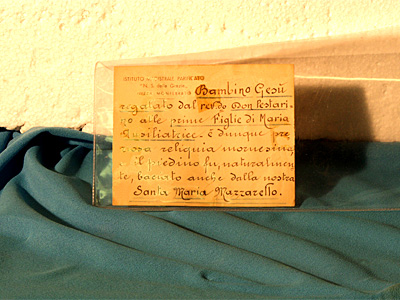 ISTITUTO MAGISTRALE PARIFICATO
Bambino Gesù
regalato dal rev.do Don Pestari-
no alle prime Figlie di Maria
Ausiliatrice. è dunque pre
ziosa reliquia mornesina
e il piedino fu, naturalmen
te, baciato anche dalla nostra
Santa Maria Mazzarello.